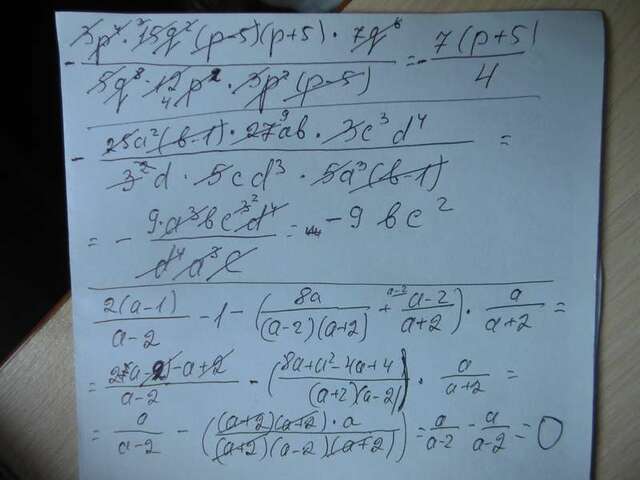 - 3p² · 15q²(p-5)(p+5) · 7q⁶ / 5q⁸ · 12p² · 3p²(p-5) = - 7(p+5) / 4
- 25a²(b-1) · 27ab · 3c³d⁴ / 3²d · 5cd³ · 5a³(b-1) =
= - 9·a³bc³d⁴ / d⁴a³c = -9bc²
2(a-1) / a-2 - 1 - (8a / (a-2)(a+2) + a-2 / a+2) · a / a+2 =
= 2a-2-a+2 / a-2 - (8a+a²-4a+4 / (a+2)(a-2)) · a / a+2 =
= a / a-2 - ((a+2)(a+2)·a / (a+2)(a-2)(a+2)) = a / a-2 - a / a-2 = 0